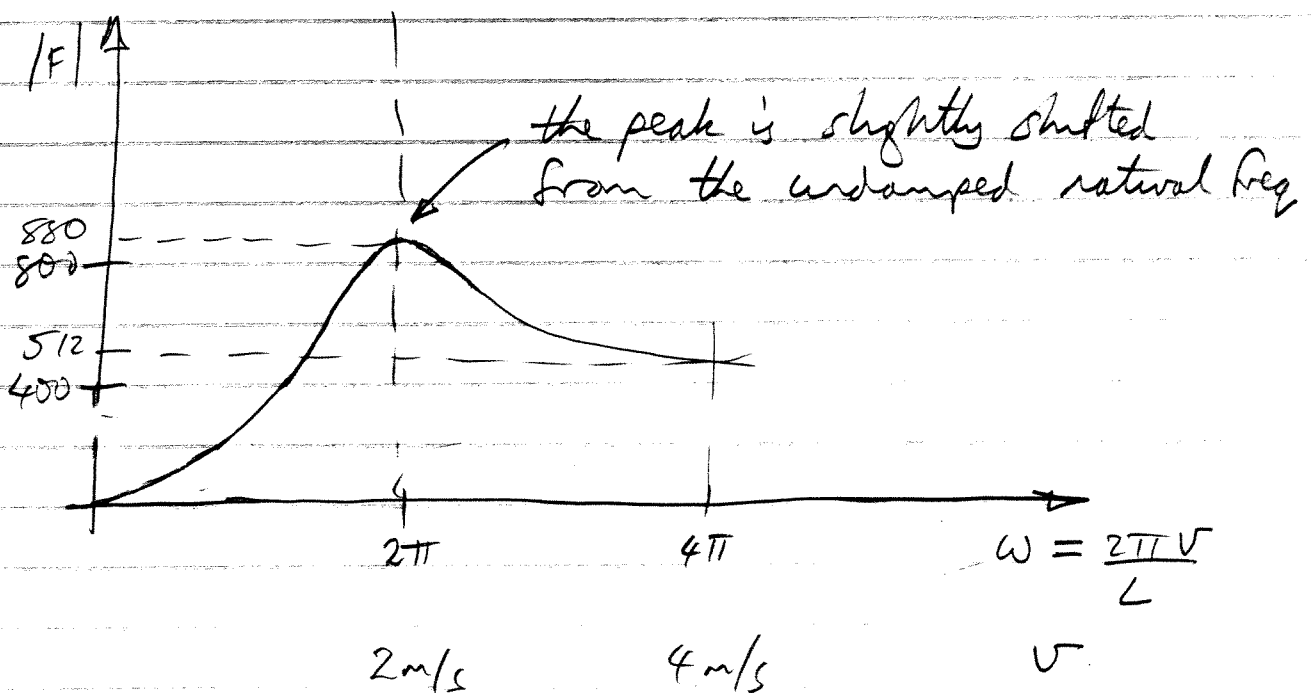 |F|
the peak is slightly shifted
from the undamped natural freq
880
800
512
400
2π 4π ω = 2πv/L
2m/s 4m/s v